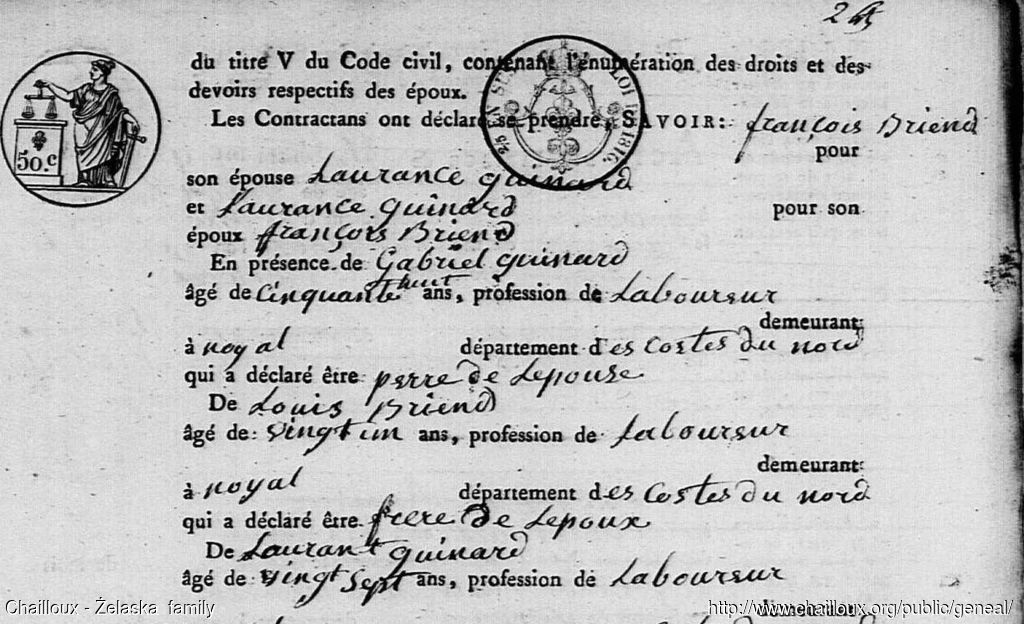 du titre V du Code civil, contenant l'énumération des droits et des
devoirs respectifs des époux.
Les Contractans ont déclaré se prendre, SAVOIR: françois Briend
pour
son épouse Laurance guinard
et Laurance guinard pour son
époux françois Briend
En présence de Gabriel guinard
âgé de Cinquante huit ans, profession de Laboureur
demeurant
à noyal département des Costes du nord
qui a déclaré être perre de Lepouse
De Louis Briend
âgé de vingt un ans, profession de Laboureur
demeurant
à noyal département des Costes du nord
qui a déclaré être frere de Lepoux
De Laurant guinard
âgé de vingt sept ans, profession de Laboureur
demeurant
50.c
LOI 1816.
Chailloux - Żelaska family
http://www.chailloux.org/public/geneal/